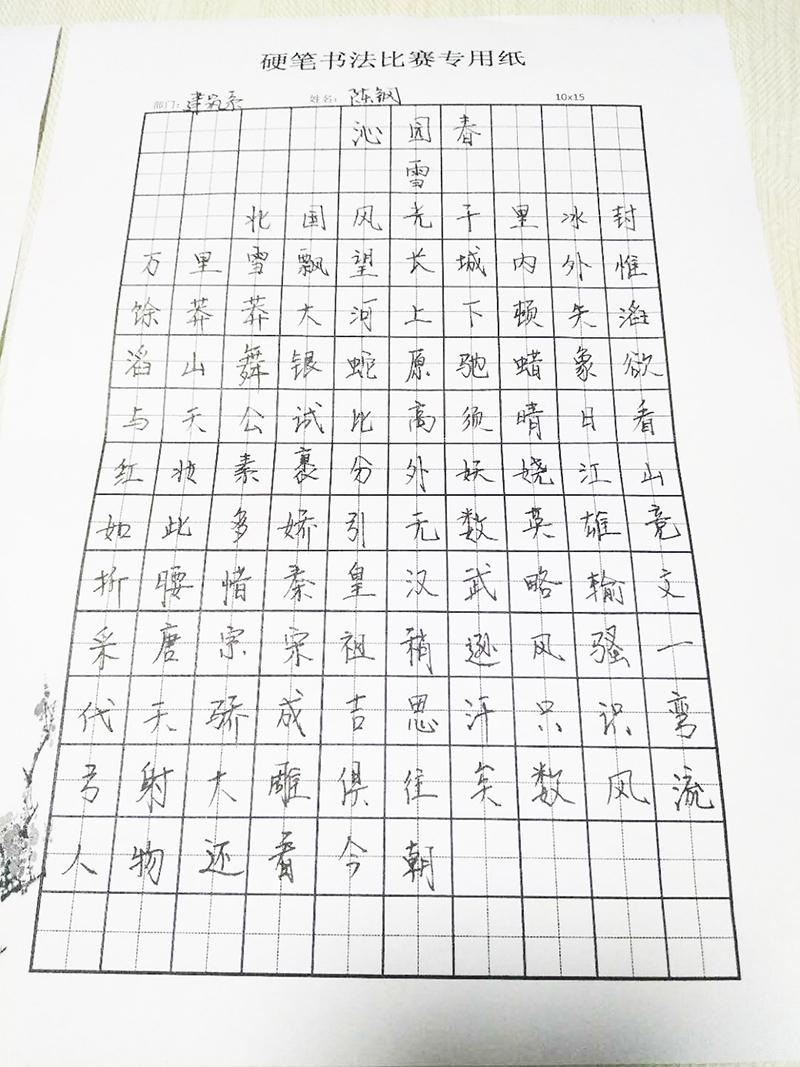 硬笔书法比赛专用纸
部门：建筑系 姓名：陈钢 10x15
沁园春
雪
北国风光千里冰封
万里雪飘望长城内外惟
馀莽莽大河上下顿失滔
滔山舞银蛇原驰蜡象欲
与天公试比高须晴日看
红妆素裹分外妖娆江山
如此多娇引无数英雄竞
折腰惜秦皇汉武略输文
采唐宗宋祖稍逊风骚一
代天骄成吉思汗只识弯
弓射大雕俱往矣数风流
人物还看今朝